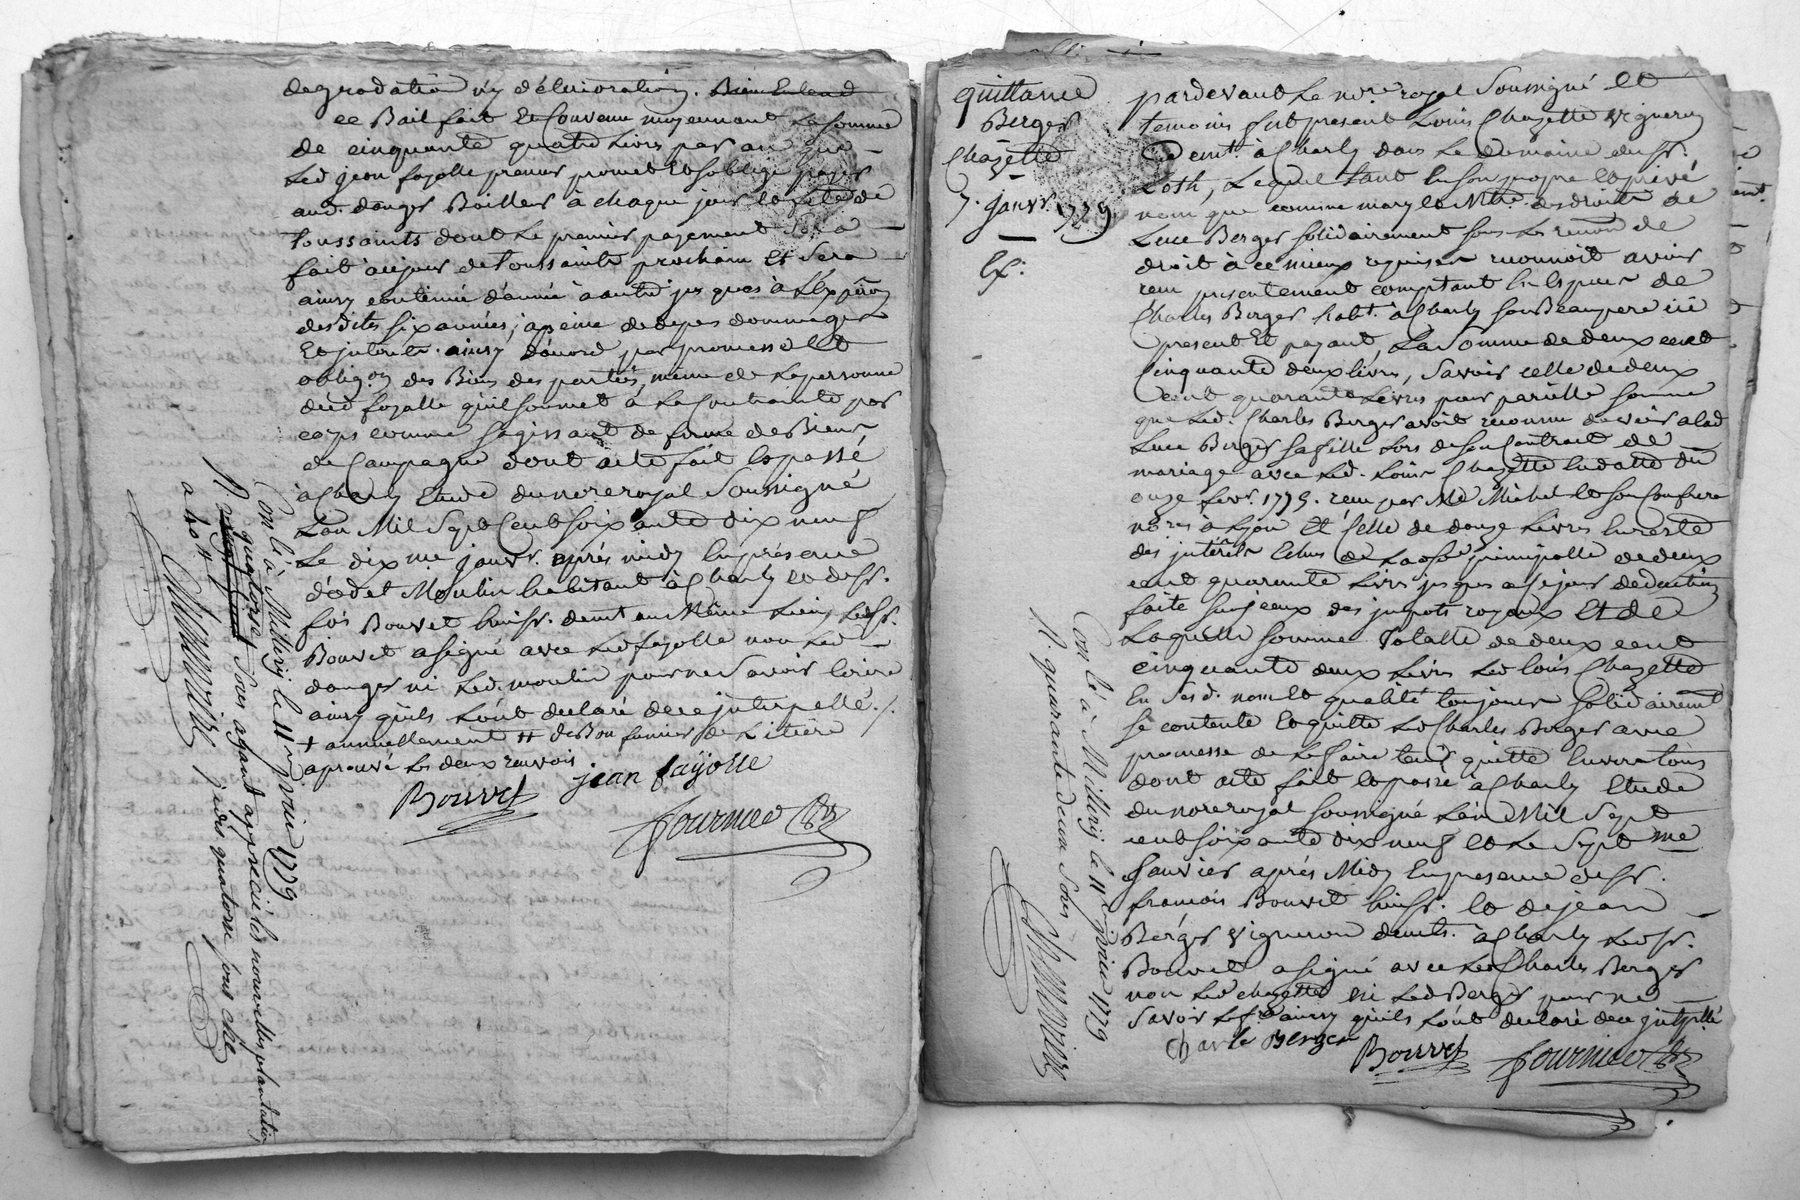 degradation ny déterioration. Bien Entend
ce Bail fait Et Convenu moyennant La somme
de cinquante quatre Livres par an que
Led jean fayolle preneur promet Et soblige payer
aud. danger Bailleur à chaque jour Et fête de
toussaints dont Le premier payement sera
fait aujour de toussaints prochain Et Sera
ainsy continué d'année à autre jusques à L'Expi͠ron
desdites six années, apeine de depens dommages
Et interets. ainsy d'accord par promesse Et
oblig.on des Biens des parties, même de La personne
dud fayolle qu'il soumet à La Contrainte par
corps comme sagissant de ferme de Biens
de Campagne dont acte fait Et passé
à Charly Etude du no͠re royal Soussigné
L'an Mil Sept Cent Soixante dix neuf
Le dix me janvr. après midy En présence
d'odet Moulin habitant à Charly Et de sr.
fois Bouvet huissr. demt au Même Lieu, Ledsr.
Bouvet a signé avec Led fayolle non Led
danger ni Led. moulin pour ne Savoir Ecrire
ainsy qu'ils L'ont declaré de ce interpellé ./.
+ annuellement # de Bon fumier de Litière
aprouvé Les deux renvois
Bouvet jean fayolle
fournier
Con lé à Millery le 11 jvier 1779
R. quatorse sous ayant apprecié les nouvelles plantations
a 40 # jedis quatorse sous
quittance
Berger
Chazette
7. janvr. 1779
Pardevant Le no.re royal Soussigné Et
temoins fut present Louis Chazette Vigneron
Demt. à Charly dans Le Domaine du sr.
Loth, Lequel tant En son propre Et privé
nom que comme mary Et Mtre. des droits de
Luce Berger solidairement sous Les renon de
droit à ce mieux requises reconnoit avoir
reçu presentement comptant En Especes de
Charles Berger habt. à Charly son Beaupere ici
present Et payant, La Somme de deux cent
Cinquante deux livres, Savoir celle de deux
Cent quarante Livres pour pareille somme
que Led. Charles Berger avoit reconnu devoir a lad
Luce Berger sa fille Lors de son Contrat de
mariage avec Led. Louis Chazette En datte du
onze fevr. 1775. reçu par Me Michel Et son Confrere
no͠res à Lyon Et Celle de douze Livres En reste
des intérêts Echus de La de. Somme principalle de deux
cent quarante Livres jusques a ce jour deduction
faite sur jceux des jmpots royaux Et de
Laquelle somme totalle de deux cent
cinquante deux Livres Led louis Chazette
En ses d. noms Et qualité toujours solidairement
se contente Et quitte Led Charles Berger avec
promesse de Le faire tenir quitte Envers tous
dont acte fait Et passé à Charly Etude
du no͠re royal soussigné L'an Mil Sept
cent Soixante dix neuf Et Le Sept me
Janvier après Midy En presence de sr.
françois Bouvet huissr. Et de jean
Berger vigneron demts. à Charly Ledsr.
Bouvet a signé avec Led Charles Berger
non Led chazette ni Led Berger pour ne
savoir Le fre ainsy qu'ils L'ont declaré de ce jnterpellé
Charle Berger Bouvet fournier
Con lé à Millery le 11 jvier 1779
R. quarante deux Sous